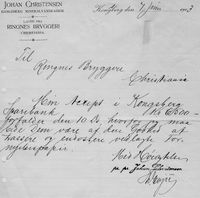 JOHAN CHRISTENSEN
KONGSBERG MINERALVANDFABRIK
LAGER FRA
RINGNES BRYGGERI
CHRISTIANIA
Kongsberg den
Til
Ringnes Bryggeri
Christiania
Min Accept i Kongsberg
Sparebank
forfalder den 10 Ds, hvorfor jeg maa
bede Dem være af den Godhed at
og vedlagte for-
nyelsespapir.
Med Høiagtelse
pr pr Johan Christensen